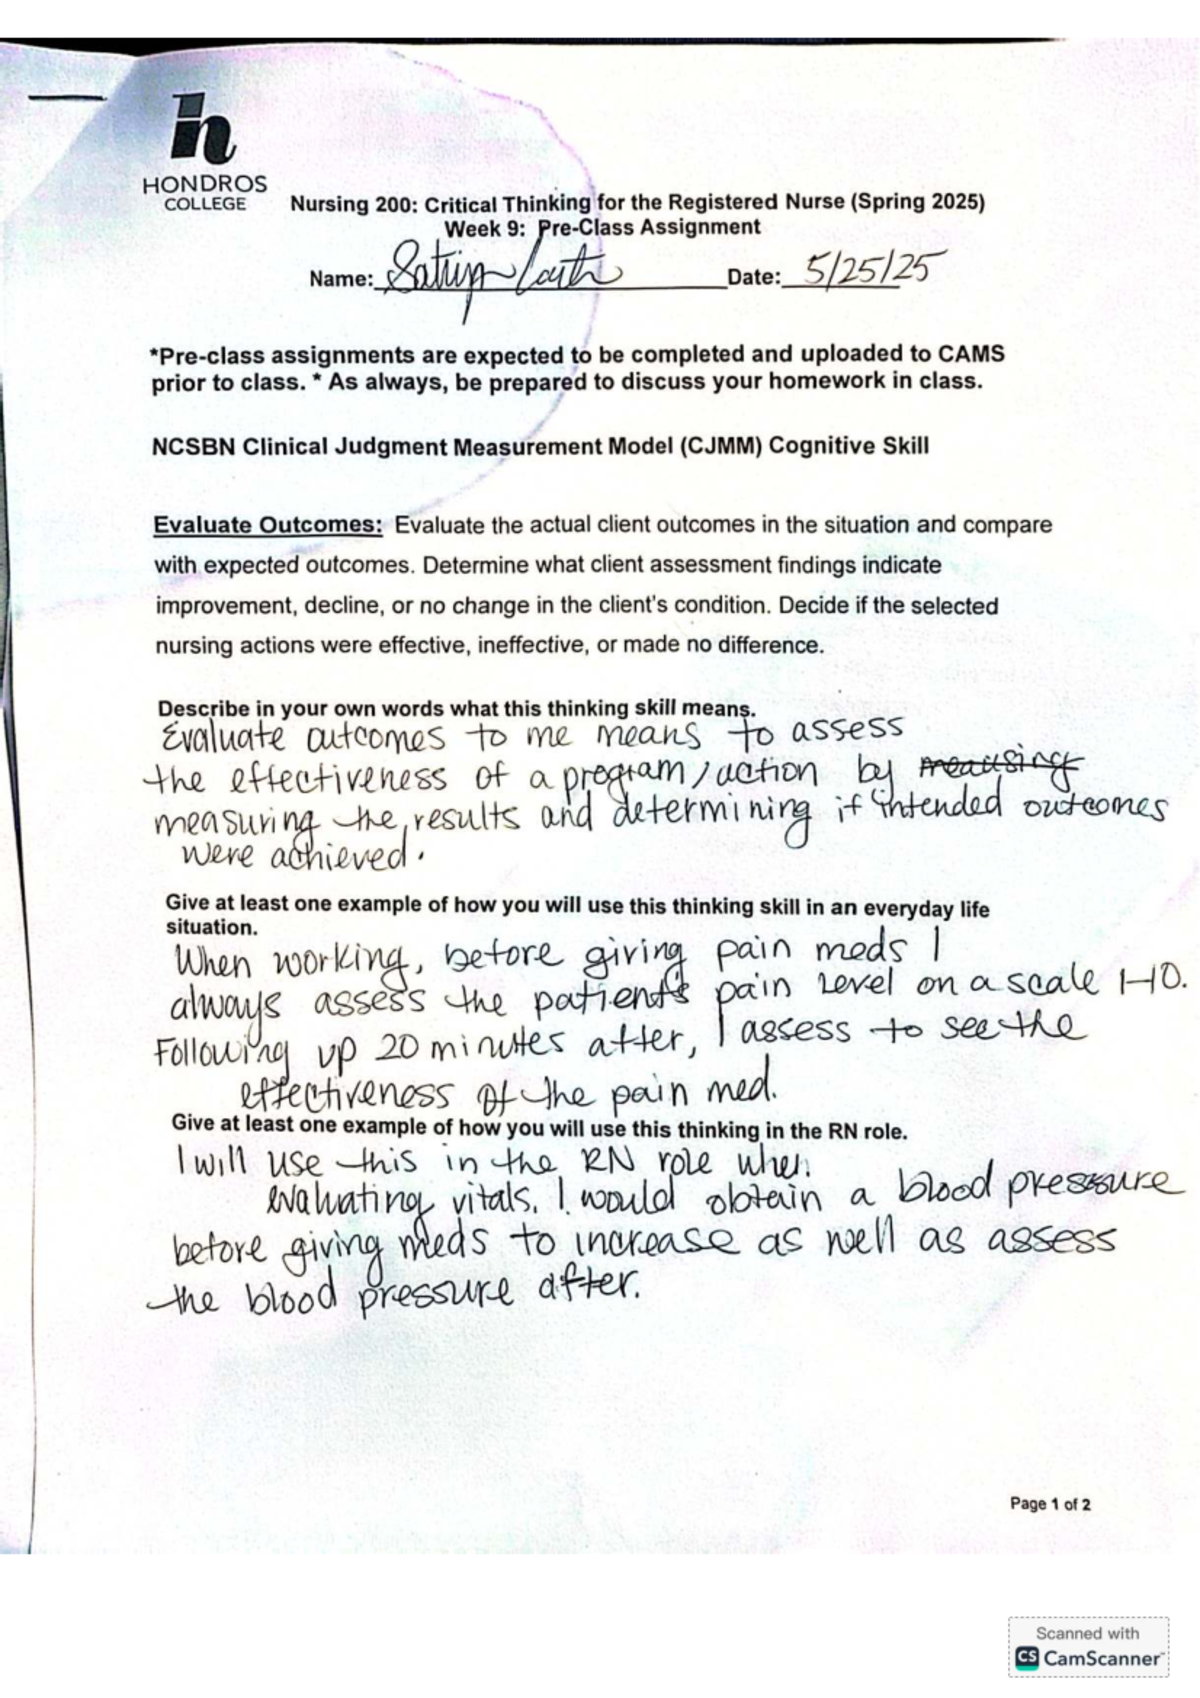 HONDROS
COLLEGE
Nursing 200: Critical Thinking for the Registered Nurse (Spring 2025)
Week 9: Pre-Class Assignment
Name: Date: 5/25/25
*Pre-class assignments are expected to be completed and uploaded to CAMS
prior to class. * As always, be prepared to discuss your homework in class.
NCSBN Clinical Judgment Measurement Model (CJMM) Cognitive Skill
Evaluate Outcomes: Evaluate the actual client outcomes in the situation and compare
with expected outcomes. Determine what client assessment findings indicate
improvement, decline, or no change in the client's condition. Decide if the selected
nursing actions were effective, ineffective, or made no difference.
Describe in your own words what this thinking skill means.
Evaluate outcomes to me means to assess
the effectiveness of a program/action by
measuring the results and determining if intended outcomes
were achieved.
Give at least one example of how you will use this thinking skill in an everyday life
situation.
When working, before giving pain meds I
always assess the patient's pain level on a scale 1-10.
Following up 20 minutes after, I assess to see the
effectiveness of the pain med.
Give at least one example of how you will use this thinking in the RN role.
I will use this in the RN role when
evaluating vitals. I would obtain a blood pressure
before giving meds to increase as well as assess
the blood pressure after.
Page 1 of 2
Scanned with
CS CamScanner